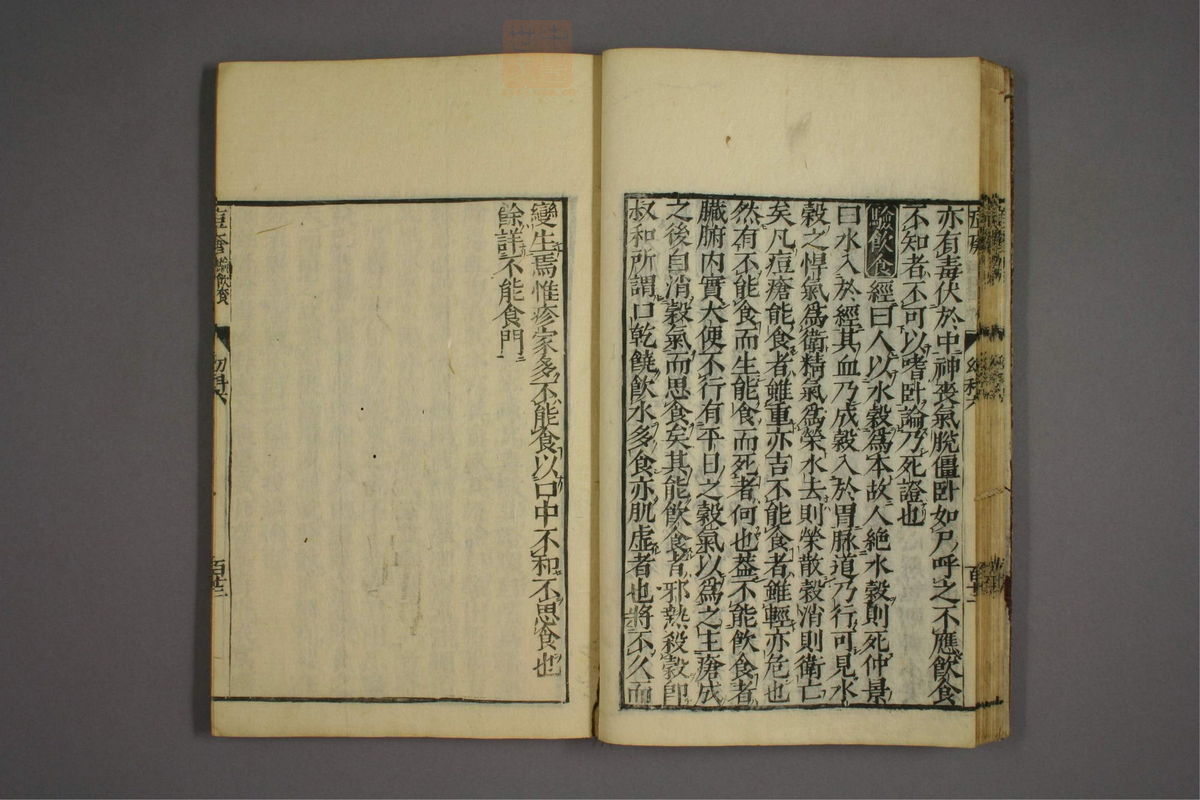 亦有毒伏於中神喪氣脫僵卧如尸呼之不應飲食
不知者不可以嗜卧論乃死證也
驗飲食 經曰人以水穀爲本故人絶水穀則死仲景
曰水入於經其血乃成穀入於胃脉道乃行可見水
穀之悍氣爲衛精氣爲榮水去則榮散穀消則衛亡
矣凡痘瘡能食者雖重亦吉不能食者雖輕亦危也
然有不能食而生能食而死者何也葢不能飲食者
臟腑内實大便不行有平日之穀氣以爲之主瘡成
之後自消穀氣而思食矣其能飲食者邪熱殺穀即
叔和所謂口乾饒飲水多食亦肌虚者也將不久而
變生焉惟疹家多不能食以口中不和不思食也
餘詳不能食門